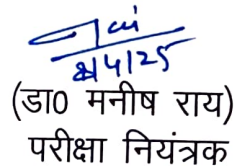 (डा0 मनीष राय)
परीक्षा नियंत्रक